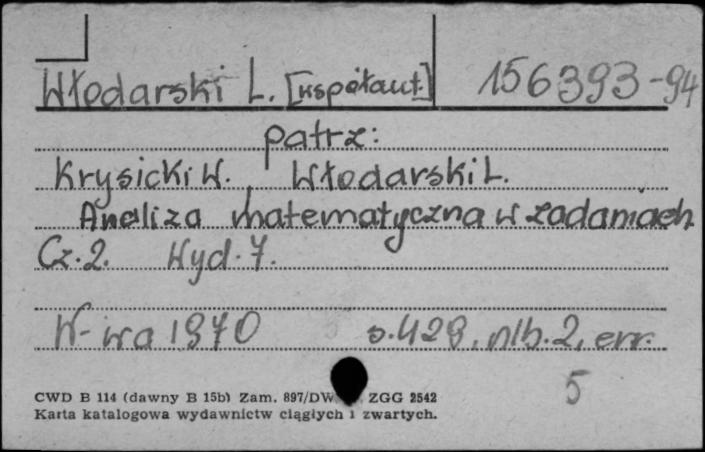 Włodarski L. [współaut.] 156393-94
patrz:
Krysicki W., Włodarski L.
Analiza matematyczna w zadaniach
Cz. 2. Wyd. 7.
W-wa 1970 s. 428, nlb. 2, err.
5
CWD B 114 (dawny B 15b) Zam. 897/DW ZGG 2542
Karta katalogowa wydawnictw ciągłych i zwartych.